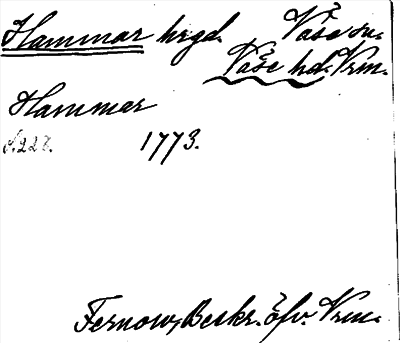 Hammar hrgd. Väse sn.
Väse hd. Vrm.
Hammar
S.227. 1773.
Fernow, Beskr. öfv. Vrm.